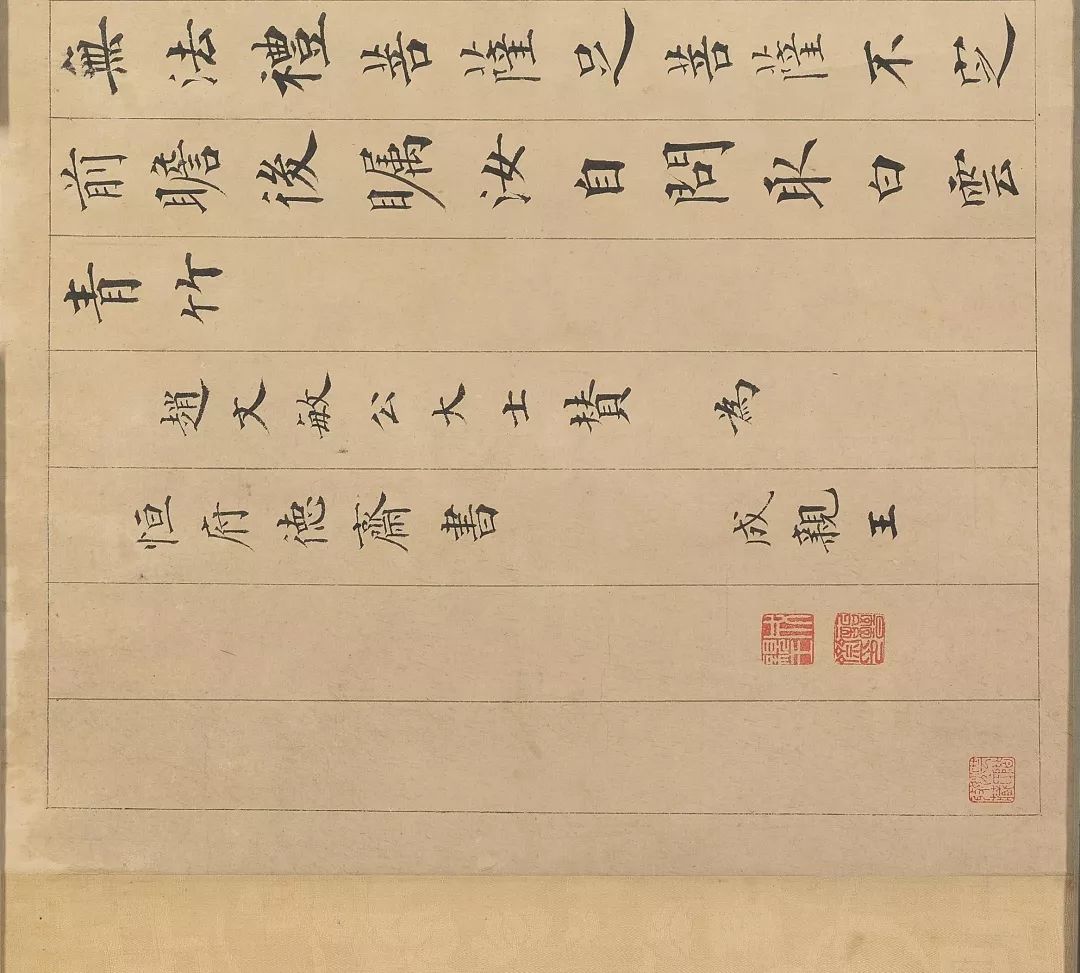 無法禮菩薩足菩薩不定
前瞻後矚汝自問取白雲
青竹
趙文敏公大士贊 為
恒府德齋書 成親王